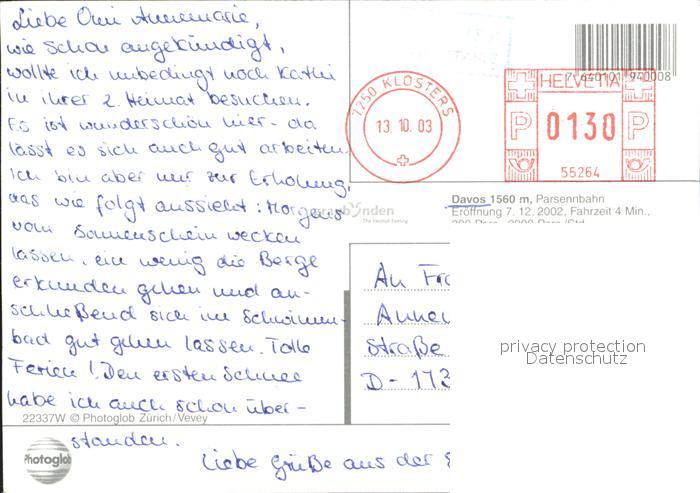 Liebe Omi Annemarie,
wie schon angekündigt,
wollte ich unbedingt noch Kathi
in ihrer 2. Heimat besuchen.
Es ist wunderschön hier - da
lässt es sich auch gut arbeiten.
Ich bin aber nur zur Erholung,
das wie folgt aussieht: Morgens
vom Sonnenschein wecken
lassen, ein wenig die Berge
erkunden gehen und an-
schließend sich im Schwimm-
bad gut gehen lassen. Tolle
Ferien! Den ersten Schnee
habe ich auch schon über-
standen.
Liebe Grüße aus der
22337W © Photoglob Zürich/Vevey
Photoglob
7250 KLOSTERS
13.10.03
7 640101 940008
HELVETIA
P 0130 P
55264
Davos 1560 m, Parsennbahn
Eröffnung 7. 12. 2002, Fahrzeit 4 Min.,
An
Straße
D-173
privacy protection
Datenschutz